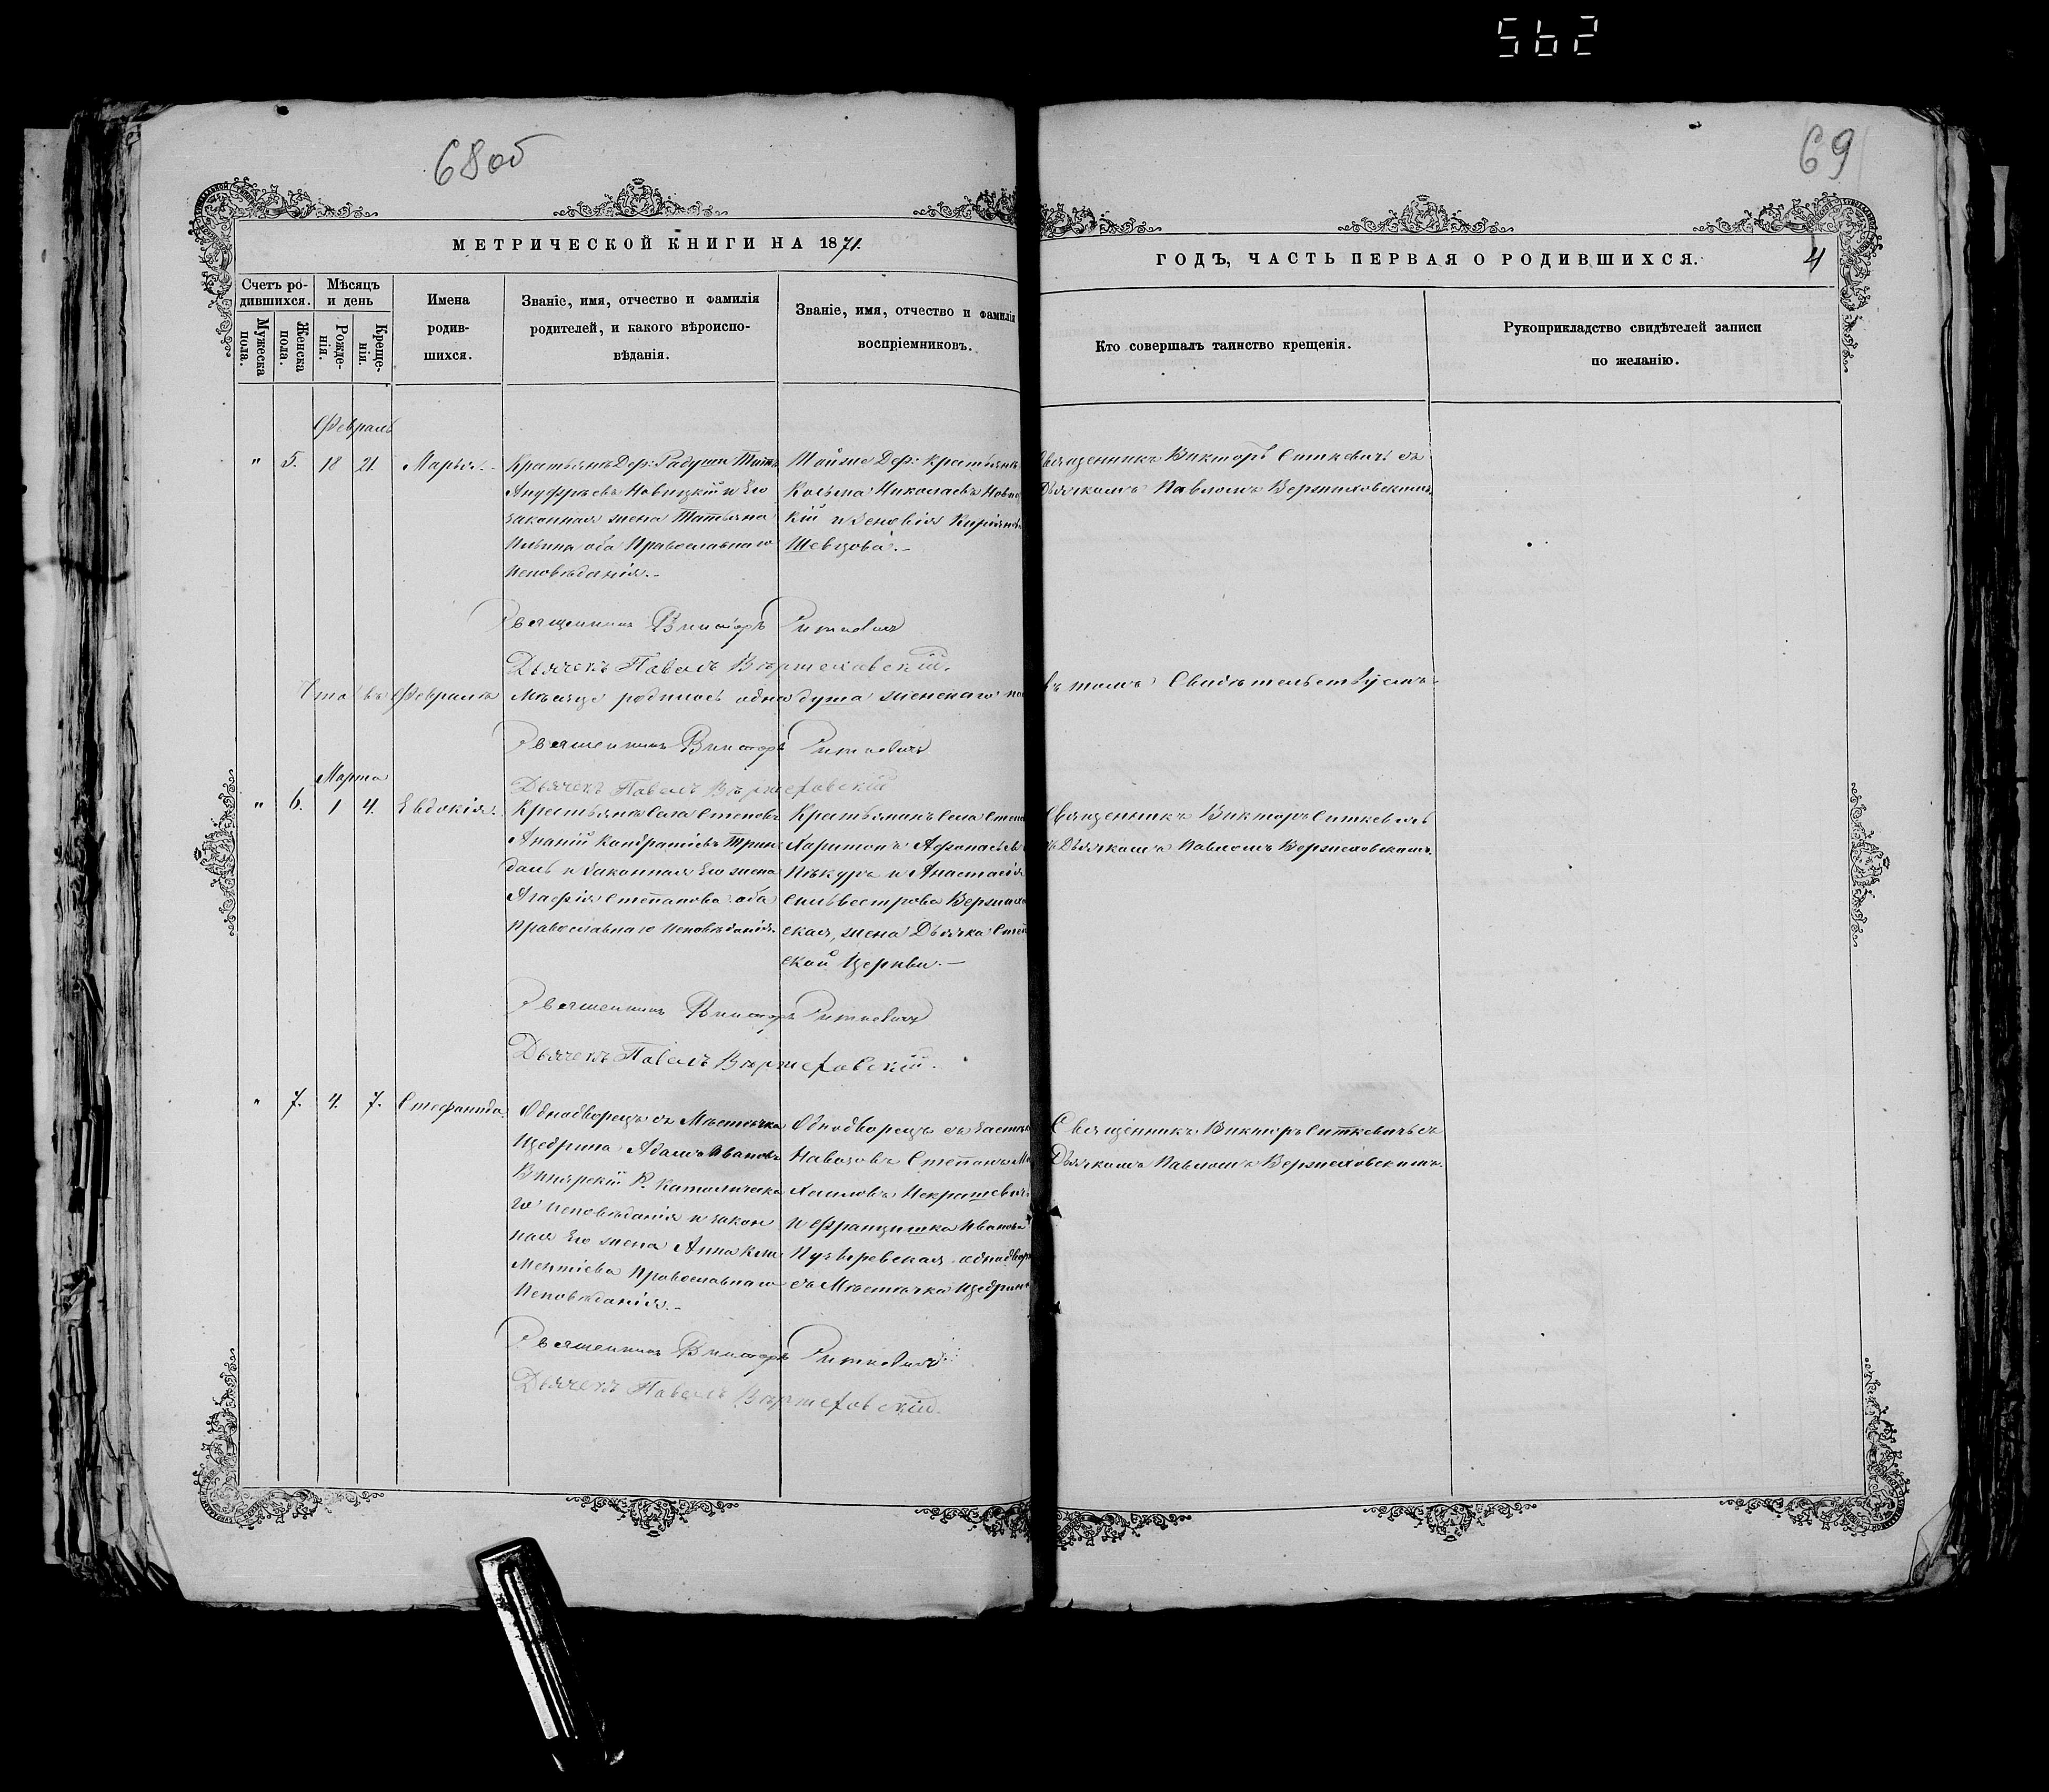 562
68об
69
МЕТРИЧЕСКОЙ КНИГИ НА 1871.
ГОДЪ, ЧАСТЬ ПЕРВАЯ О РОДИВШИХСЯ.
4
Счетъ ро-
дившихся.
Мужеска
пола.
Женска
пола.
Мѣсяцъ
и день
Рожде-
нія.
Креще-
нія.
Имена
родив-
шихся.
Званіе, имя, отчество и фамилія
родителей, и какого вѣроиспо-
вѣданія.
Званіе, имя, отчество и фамилія
воспріемниковъ.
Кто совершалъ таинство крещенія.
Рукоприкладство свидѣтелей записи
по желанію.
Февраль
" 5. 18 21. Марья.-
Крестьянъ Дер: Радуши Титъ
Ануфріевъ Новицкій и Его
законная жена Татьяна
Ильина оба Православнаго
Исповѣданія.-
Тойже Дер: крестьянъ
Козьма Николаевъ Нови
кій и Зеновія
Шевцова.-
Священникъ Викторъ Ситкевичъ съ
Дьячкомъ Павломъ Вержиховскимъ.
Священникъ Викторъ Ситкевичъ
Дьячекъ Павелъ Вержеховскій.
Что въ Февралѣ Мѣсяцѣ родилось одна душа женскаго по
въ томъ Свидѣтельствуемъ.
Священникъ Викторъ Ситкевичъ
Дьячекъ Павелъ Вержеховскій
Марта
" 6. 1 4. Евдокія.
Крестьянъ Села Степовъ
Ананій Кондратіевъ Трин
далъ и Законная Его жена
Агафія Степанова оба
Православнаго Исповѣданія.
Крестьянинъ Села Степ
Харитонъ Афонасьевъ
Пѣкуръ и Анастасія
Сильвестрова Вержихо
ская, жена Дьячка Степ
ской Церкви.-
Священникъ Викторъ Ситкевичъ
съ Дьячкомъ Павломъ Вержеховскимъ.
Священникъ Викторъ Ситкевичъ
Дьячекъ Павелъ Вержеховскій.
" 7. 4. 7. Стефанида.
Однодворецъ съ Мѣстечка
Щедрина Адамъ Ивановъ
Р. Католическа
го исповѣданія и закон
ная Его жена Анна Кли
ментіева Православнаго
Исповѣданія.-
Однодворецъ съ Засты
Навозовъ Степанъ Ми
хаиловъ Некрашевичъ
и Францишка Иванова
однодвор
съ Мѣстечка Щедрина
Священникъ Викторъ Ситкевичъ съ
Дьячкомъ Павломъ Вержеховскимъ.
Священникъ Викторъ Ситкевичъ
Дьячекъ Павелъ Вержеховскій.